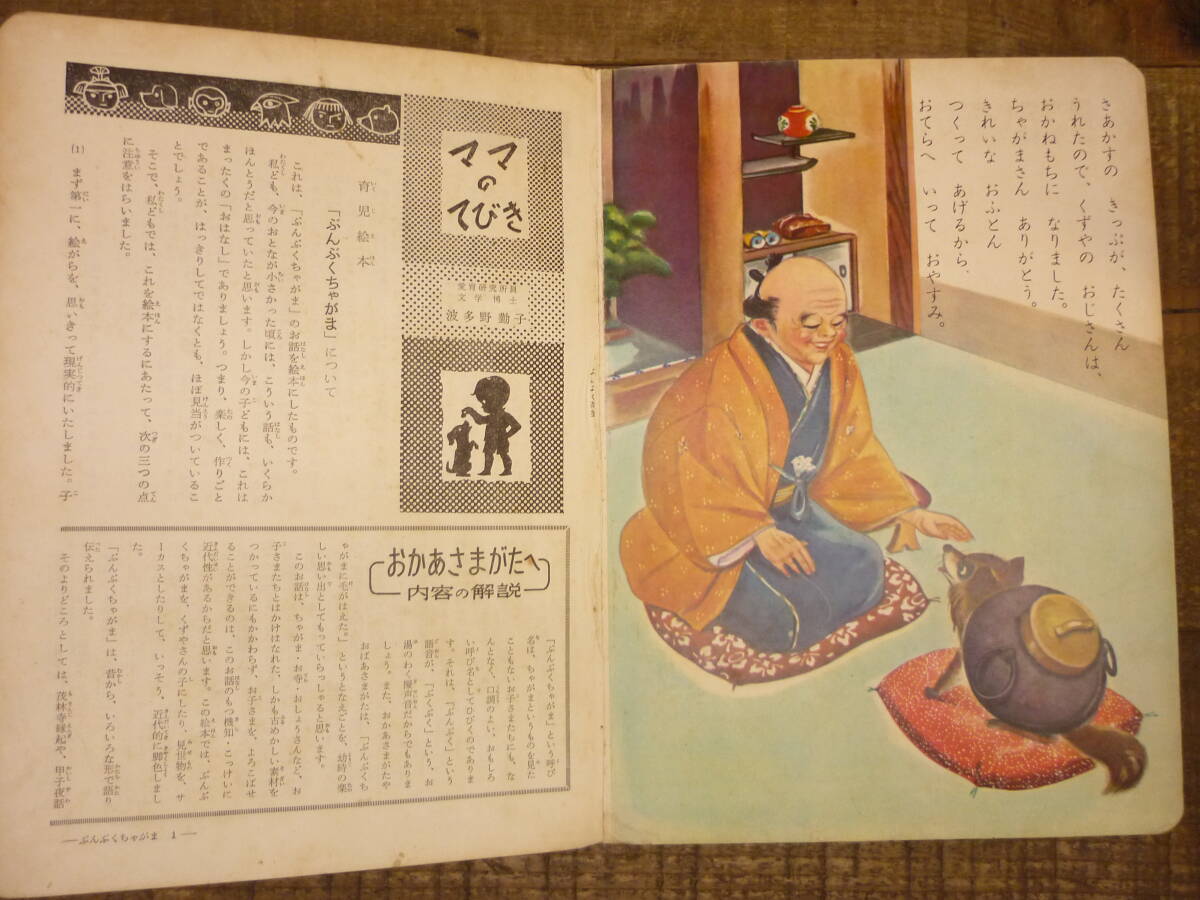 さあかすの きっぷが、たくさん
うれたので、くずやの おじさんは、
おかねもちに なりました。
ちゃがまさん ありがとう。
きれいな おふとん
つくって あげるから、
おてらへ いって おやすみ。
ママ
の
てびき
愛育研究所員
文学博士
波多野勤子
育児絵本
「ぶんぶくちゃがま」について
これは、「ぶんぶくちゃがま」のお話を絵本にしたものです。
私ども、今のおとなが小さかった頃には、こういう話も、いくらか
ほんとうだと思っていたと思います。しかし今の子どもには、これは
まったくの「おはなし」でありましょう。つまり、楽しく、作りごと
であることが、はっきりしてではなくとも、ほぼ見当がついているこ
とでしょう。
そこで、私どもでは、これを絵本にするにあたって、次の三つの点
に注意をはらいました。
(1) まず第一に、絵がらを、思いきって現実的にいたしました。子
おかあさまがたへ
内容の解説
「ぶんぶくちゃがま」という呼び
名は、ちゃがまというものを見た
こともないお子さまたちにも、な
んとなく、口調のよい、おもしろ
い呼び名としてひびくのでありま
す。それは、「ぶんぶく」という
語音が、「ぶくぶく」という、お
湯のわく擬声音だからでもありま
しょう。また、おかあさまがたや
おばあさまがたは、「ぶんぶくち
ゃがまに毛がはえた。」というとなえごとを、幼時の楽
しい思い出としてもっていらっしゃると思います。
このお話は、ちゃがま・お寺・おしょうさんなど、お
子さまたちとはかけはなれた、しかも古めかしい素材を
つかっているにもかかわらず、お子さまを、よろこばせ
ることができるのは、このお話のもつ機知・こっけいに
近代性があるからだと思います。この絵本では、ぶんぶ
くちゃがまを、くずやさんの子にしたり、見世物を、サ
ーカスとしたりして、いっそう、近代的に脚色しまし
た。
「ぶんぶくちゃがま」は、昔から、いろいろな形で語り
伝えられました。
そのよりどころとしては、茂林寺縁起や、甲子夜話
―ぶんぶくちゃがま 1―